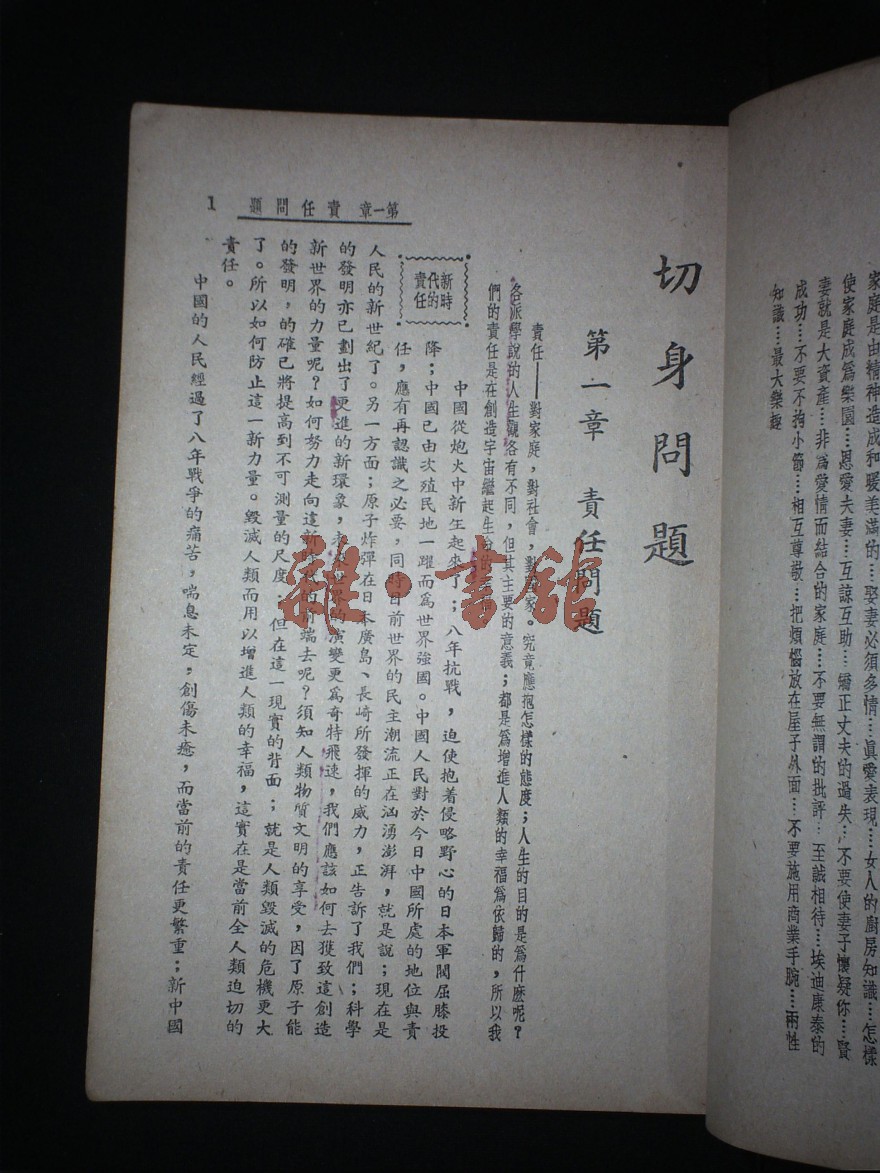 家庭是由精神造成和暖美滿的……娶妻必須多情……眞愛表現……女人的厨房知識……怎樣
使家庭成爲樂園……恩愛夫妻……互諒互助……矯正丈夫的過失……不要使妻子懷疑你……賢
妻就是大資產……非爲愛情而結合的家庭……不要無謂的批評……至誠相待……埃迪康泰的
成功……不要不拘小節……相互尊敬……把煩惱放在屋子外面……不要施用商業手腕……兩性
知識……最大樂趣
切身問題
第一章 責任問題
責任——對家庭，對社會，對國家。究竟應抱怎樣的態度；人生的目的是爲什麼呢？
各派學說的人生觀各有不同，但其主要的意義；都是爲增進人類的幸福爲依歸的，所以我
們的責任是在創造宇宙繼起生命的
新時代的責任
中國從炮火中新生起來了；八年抗戰，迫使抱着侵略野心的日本軍閥屈膝投
降；中國已由次殖民地一躍而爲世界強國。中國人民對於今日中國所處的地位與責
任，應有再認識之必要，同時目前世界的民主潮流正在洶湧澎湃，就是說；現在是
人民的新世紀了。另一方面；原子炸彈在日本廣島、長崎所發揮的威力，正告訴了我們；科學
的發明亦已劃出了更進的新環象，未來世界的演變更爲奇特飛速，我們應該如何去獲致這創造
新世界的力量呢？如何努力走向這新時代的前端去呢？須知人類物質文明的享受，因了原子能
的發明，的確已將提高到不可測量的尺度；但在這一現實的背面；就是人類毀滅的危機更大
了。所以如何防止這一新力量。毀滅人類而用以增進人類的幸福，這實在是當前全人類迫切的
責任。
中國的人民經過了八年戰爭的痛苦，喘息未定，創傷未癒，而當前的責任更繁重；新中國
第一章 責任問題 1
雜·書館